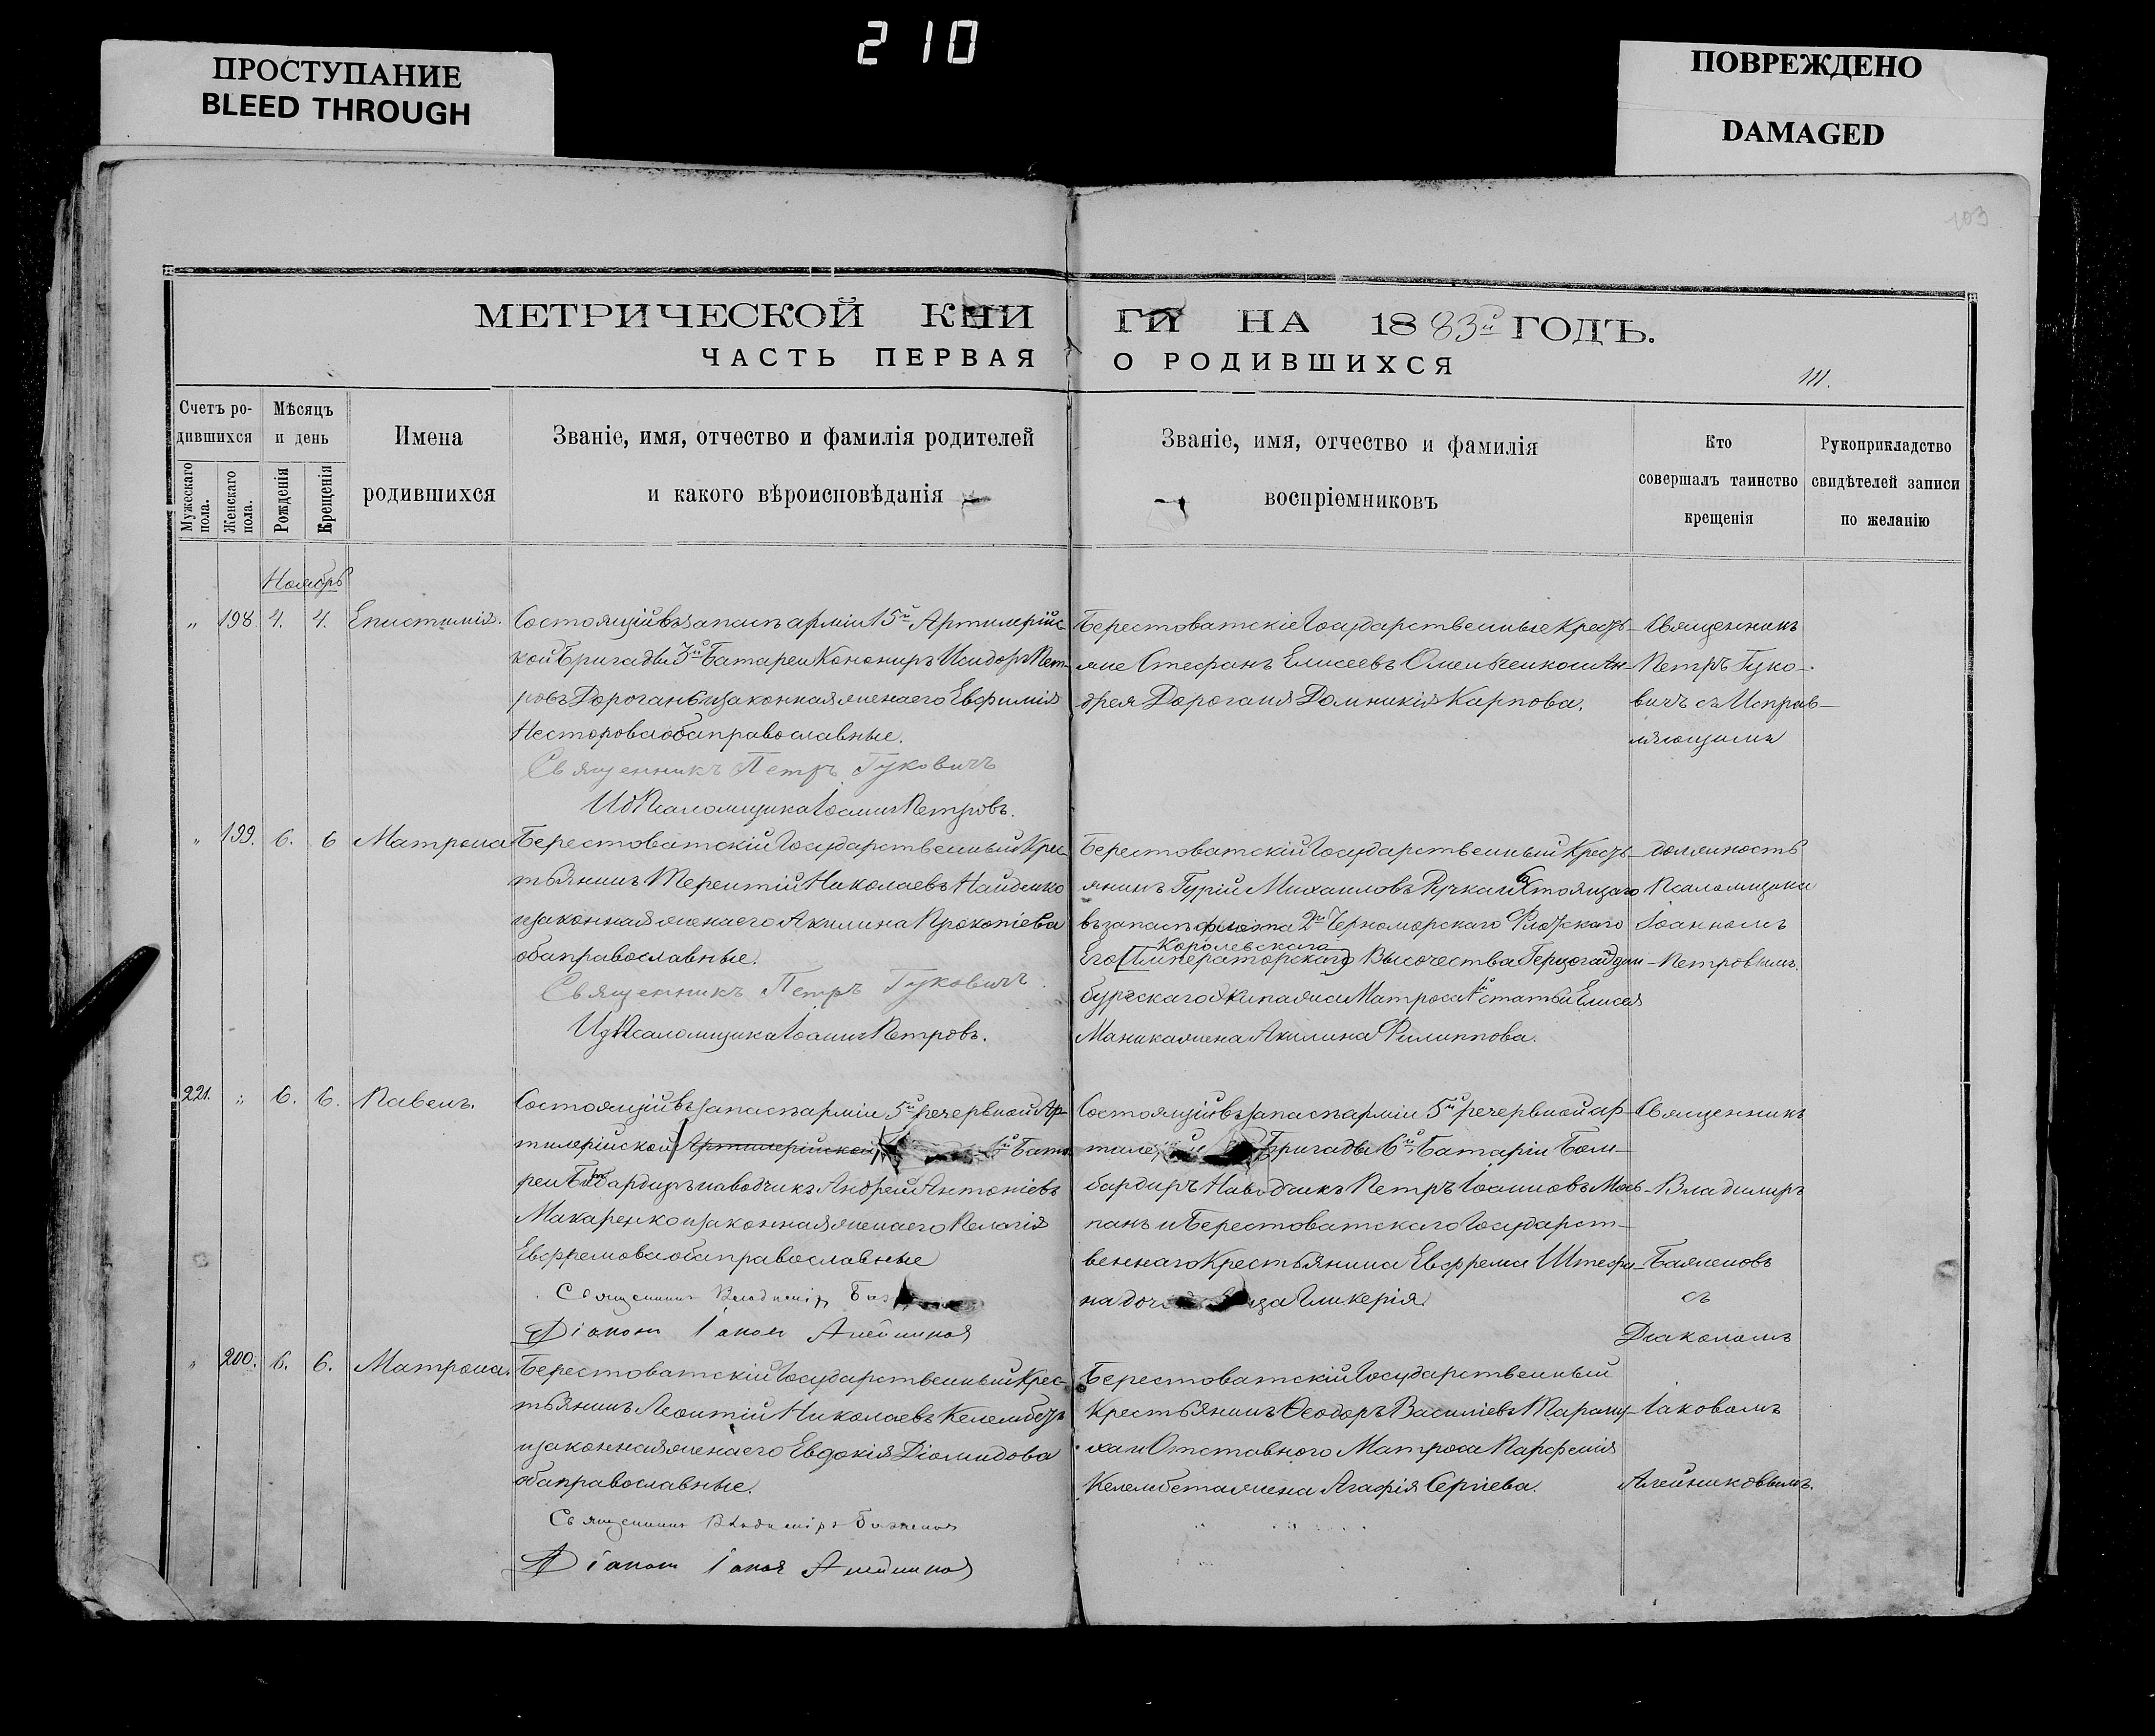 210
ПРОСТУПАНИЕ
BLEED THROUGH
ПОВРЕЖДЕНО
DAMAGED
103
МЕТРИЧЕСКОЙ КНИ ГИ НА 1883й ГОДЪ.
ЧАСТЬ ПЕРВАЯ О РОДИВШИХСЯ
111.
Счетъ ро-
дившихся
Мужескаго пола.
Женскаго пола.
Мѣсяцъ
и день
Рожденія
Крещенія
Имена
родившихся
Званіе, имя, отчество и фамилія родителей
и какого вѣроисповѣданія
Званіе, имя, отчество и фамилія
воспріемниковъ
Кто
совершалъ таинство
крещенія
Рукоприкладство
свидѣтелей записи
по желанію
Ноябрь
„ 198. 4. 4. Епистимія.
Состоящій въ запасѣ арміи 15й Артилерійс-
кой Бригады 3й Батареи Кононир Исидоръ Пет-
ровъ Дорогань и законная жена его Евфимія
Несторова оба православные.
Священникъ Петръ Гуковичъ
Ид Псаломщика Іоаннъ Петровъ.
Берестоватскіе Государственные Кресть-
яне Стефанъ Елисеевъ Омельченко и Ан-
дрея Дороганя Домникія Карпова.
Священникъ
Петръ Гуко-
вичъ съ Исправ-
ляющимъ
„ 199. 6. 6 Матрона
Берестоватскій Государственный Крес-
тьянинъ Терентій Николаевъ Найденко
и законная жена его Акилина Прокопіева
оба православные.
Священникъ Петръ Гуковичъ.
Ид Псаломщика Іоаннъ Петровъ.
Берестоватскій Государственный Кресть-
янинъ Гурій Михаиловъ Ручка и Состоящаго
въ запасѣ флота 2го Черноморскаго Флотскаго
Королевскаго
Его (Императорскаго) Высочества Герцога Эдин-
бургскаго Экипажа Матроса 1й статьи Елисея
Маника жена Акилина Филиппова.
должность
Псаломщика
Іоанномъ
Петровымъ.
221. „ 6. 6. Павелъ.
Состоящій въ запасѣ арміи 5й резервной Ар-
тилерійской Артилерійской 6й Бата-
реи Бомбардиръ наводчикъ Андрей Антоніевъ
Макаренко и законная жена его Пелагія
Евфремова оба православные
Священникъ Владиміръ
Діаконъ Іаковъ Алейниковъ
Состоящій въ запасѣ арміи 5й резервной ар-
Бригады 6й Батаріи Бом-
бардиръ Наводчикъ Петръ Іоанновъ
и Берестоватскаго Государст-
веннаго Крестьянина Евфрема Штефа-
на Гликерія.
Священникъ
Владимиръ
Баженовъ
съ
Діакономъ
„ 200. 6. 6. Матрона.
Берестоватскій Государственный Крес-
тьянинъ Леонтій Николаевъ Келембетъ
и законная жена его Евдокія Діомидова
оба православные.
Священникъ Владиміръ Баженовъ
Діаконъ Іаковъ Алейниковъ
Берестоватскій Государственный
Крестьянинъ Ѳеодоръ Василіевъ
и Отставного Матроса Парфенія
Келембета жена Агафія Сергіева.
Іаковомъ
Алейниковымъ.